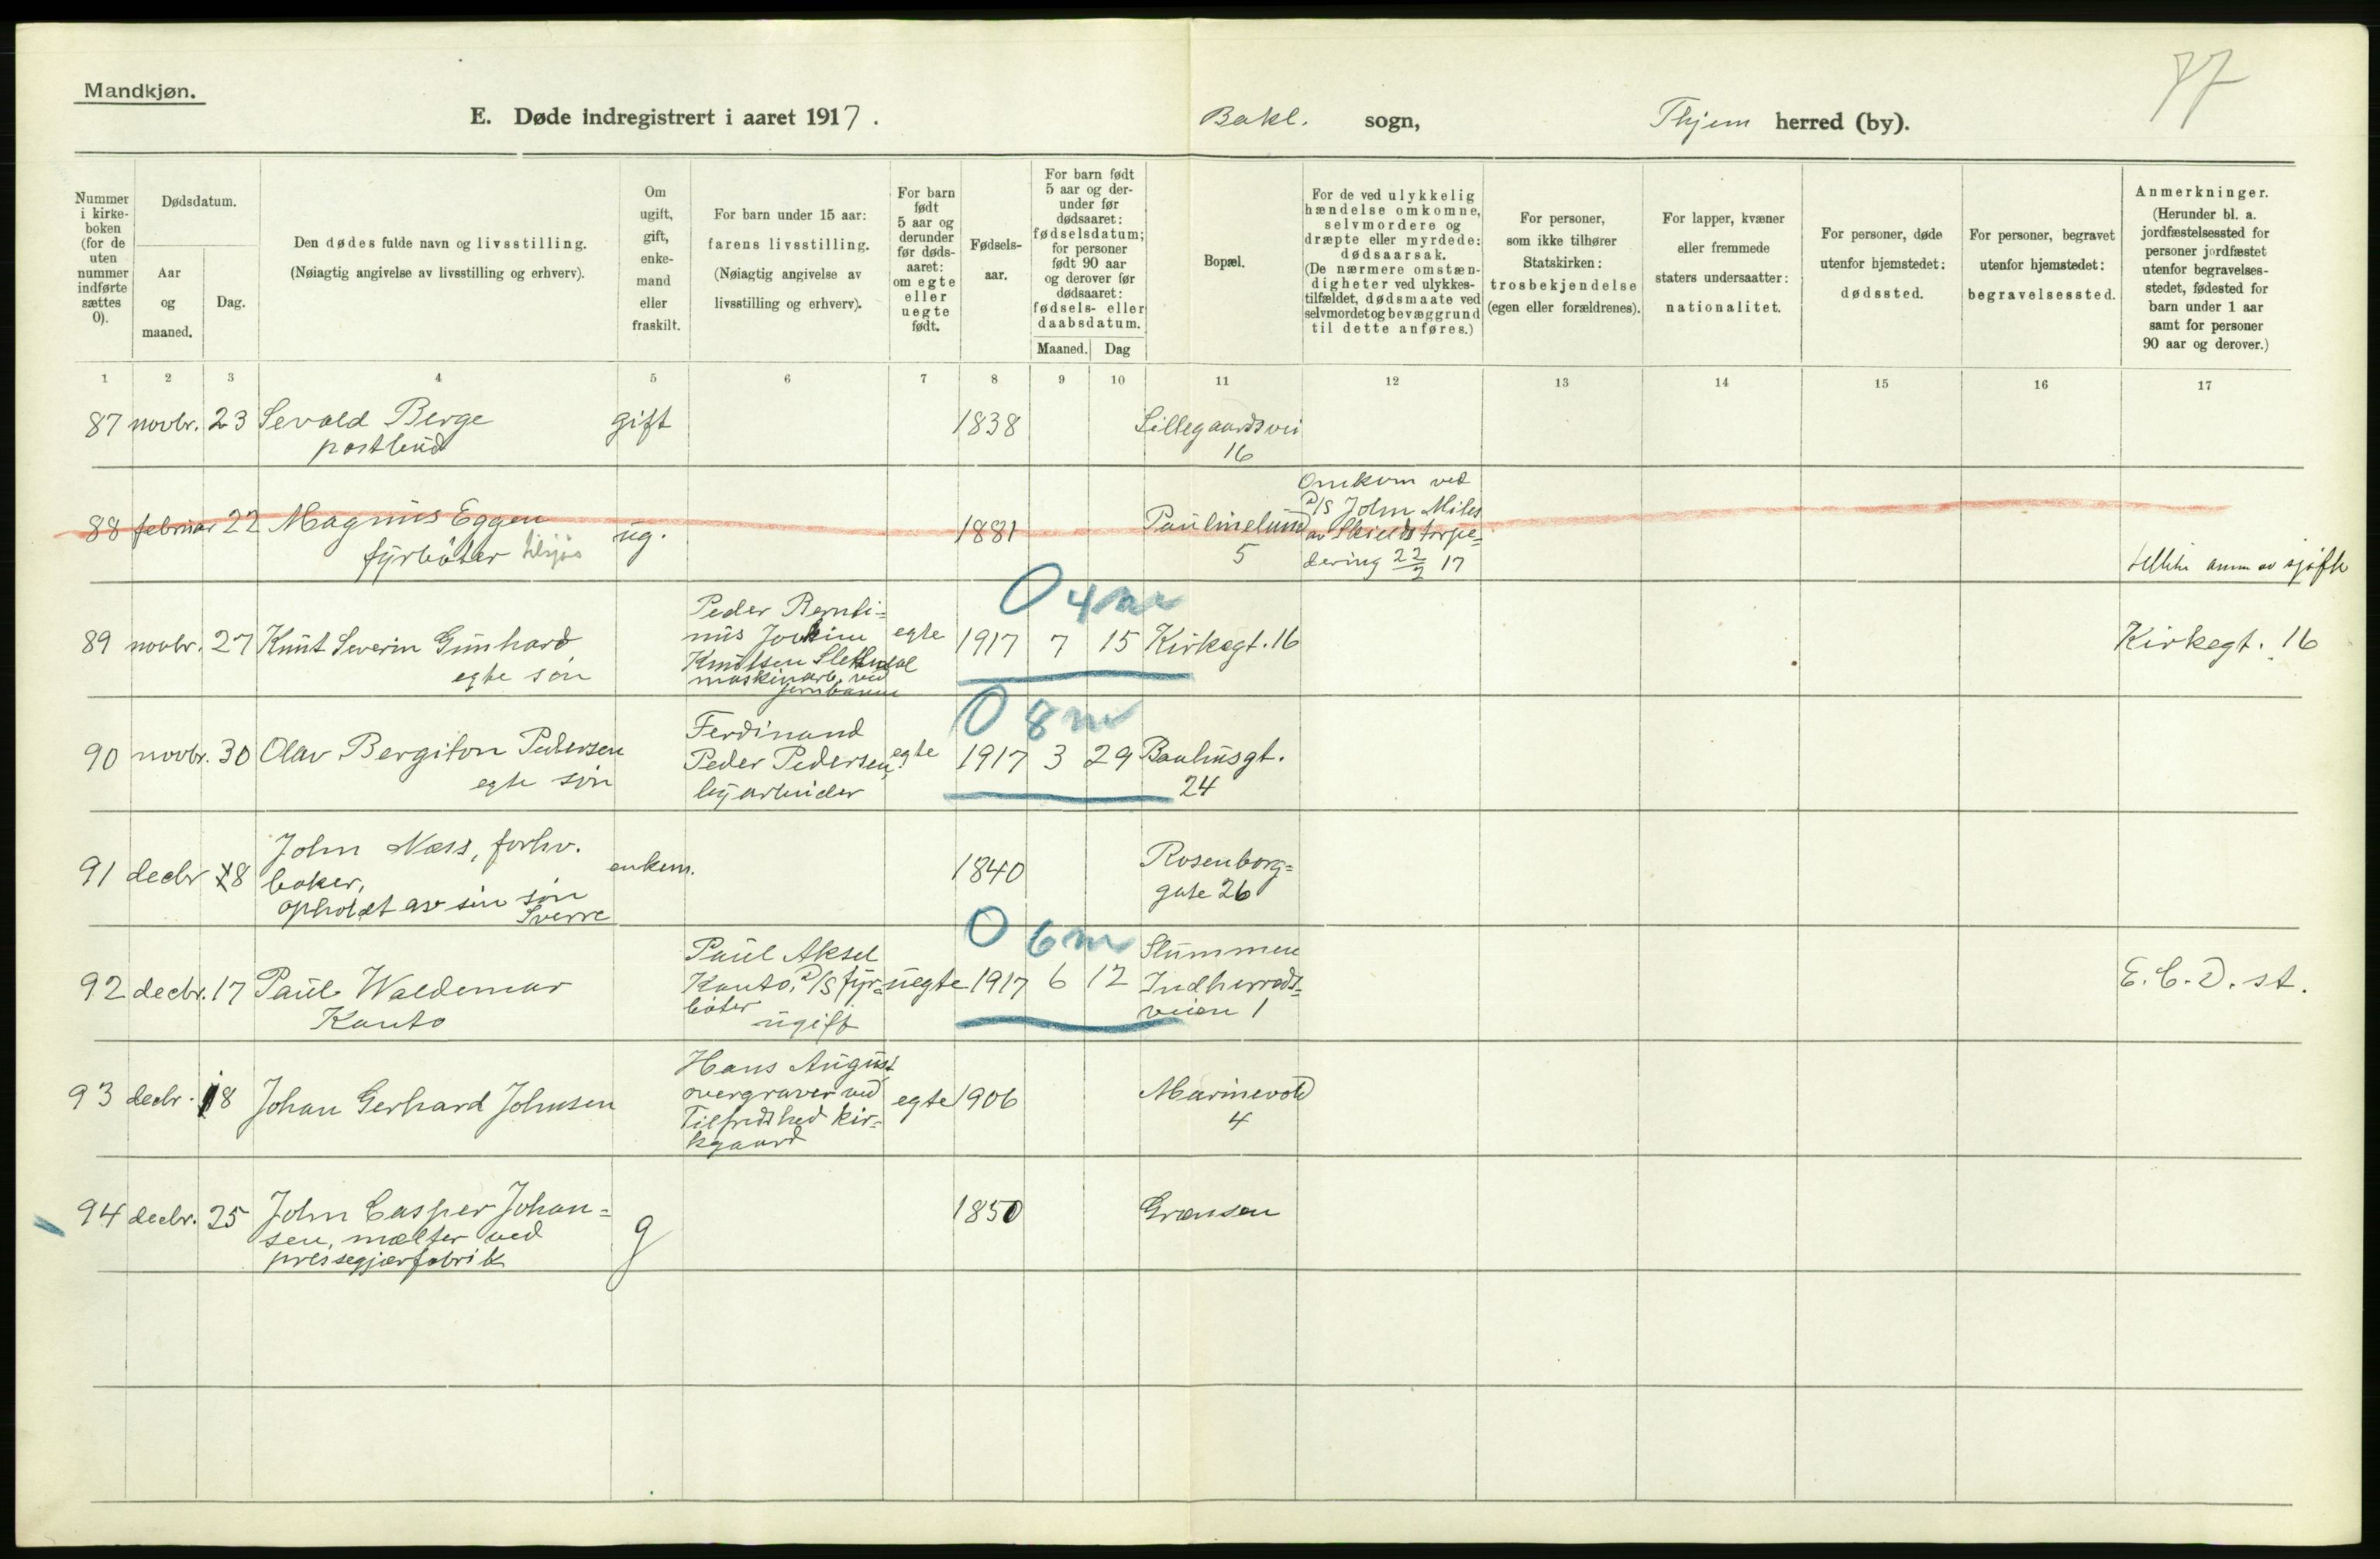 Mandkjøn.
77
E. Døde indregistrert i aaret 1917.
Bakl. sogn,
Thjem herred (by).
Nummer i kirkeboken (for de uten nummer indførte sættes 0).
Dødsdatum.
Aar og maaned.
Dag.
Den dødes fulde navn og livsstilling.
(Nøiagtig angivelse av livsstilling og erhverv).
Om ugift, gift, enkemand eller fraskilt.
For barn under 15 aar: farens livsstilling.
(Nøiagtig angivelse av livsstilling og erhverv).
For barn født 5 aar og derunder før dødsaaret: om egte eller uegte født.
Fødselsaar.
For barn født 5 aar og derunder før dødsaaret: fødselsdatum; for personer født 90 aar og derover før dødsaaret: fødsels- eller daabsdatum.
Maaned. Dag
Bopæl.
For de ved ulykkelig hændelse omkomne, selvmordere og dræpte eller myrdede: dødsaarsak.
(De nærmere omstændigheter ved ulykkestilfældet, dødsmaate ved selvmordet og bevæggrund til dette anføres.)
For personer, som ikke tilhører Statskirken: trosbekjendelse (egen eller forældrenes).
For lapper, kvæner eller fremmede staters undersaatter: nationalitet.
For personer, døde utenfor hjemstedet: dødssted.
For personer, begravet utenfor hjemstedet: begravelsessted.
Anmerkninger.
(Herunder bl. a. jordfæstelsessted for personer jordfæstet utenfor begravelsesstedet, fødested for barn under 1 aar samt for personer 90 aar og derover.)
1 2 3 4 5 6 7 8 9 10 11 12 13 14 15 16 17
87 novbr. 23 Sevald Berge gift 1838 Lillegaardsvei
postbud
16
88 februar 22 Magnus Eggen ug. 1881 Paulinelund
fyrbøter tilsjøs
5
Omkom ved
D/S John Miles
av Shields torpe=
dering 22/2 17
89 novbr. 27 Knut Severin Gunhard
egte søn
Peder Bernti=
nus Jochim
Knutsen Slettedal
maskinarb. ved
jernbanen
egte 1917 7 15 Kirkegt. 16
0 4 m
Kirkegt. 16
90 novbr. 30 Olav Bergiton Pedersen
egte søn
Ferdinand
Peder Pedersen,
byarbeider
egte 1917 3 29 Bakhusgt.
24
0 8 m
91 decbr 8 John Næss, forhv.
baker,
opholdt av sin søn
Sverre
enkem. 1840 Rosenborg=
gate 26
92 decbr. 17 Paul Waldemar
Kanto
Paul Aksel
Kanto, D/S fyr=
bøter
ugift
uegte 1917 6 12
0 6 m
Slummen
Indherreds=
veien 1
E. C. D. st.
93 decbr. 18 Johan Gerhard Johnsen
Hans August
overgraver ved
Tilfredshed kir=
kgaard
egte 1906 Marinevold
4
94 decbr. 25 John Casper Johan=
sen, mælter ved
pressegjærfabrik
g 1850 Grænsen